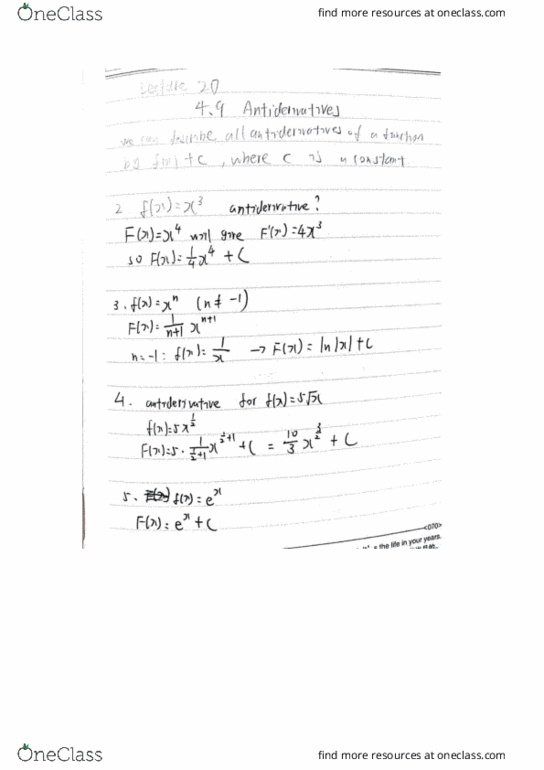 OneClass
find more resources at oneclass.com
Lecture 20
4.9 Antiderivatives
we can describe all antiderivatives of a function
by f(x) + C, where C is a constant
2 f(x)=x³ antiderivative?
F(x)=x⁴ will give F'(x)=4x³
so F(x)=1/4 x⁴ + C
3. f(x)=xⁿ (n≠-1)
F(x)=1/(n+1) xⁿ⁺¹
n=-1: f(x)=1/x → F(x)=ln|x|+C
4. antiderivative for f(x)=5√x
f(x)=5x^(1/2)
F(x)=5·1/(1/2+1) x^(1/2+1) + C = 10/3 x^(3/2) + C
5. f(x)=eˣ
F(x)=eˣ+C
<070>
the life in your years.
OneClass
find more resources at oneclass.com